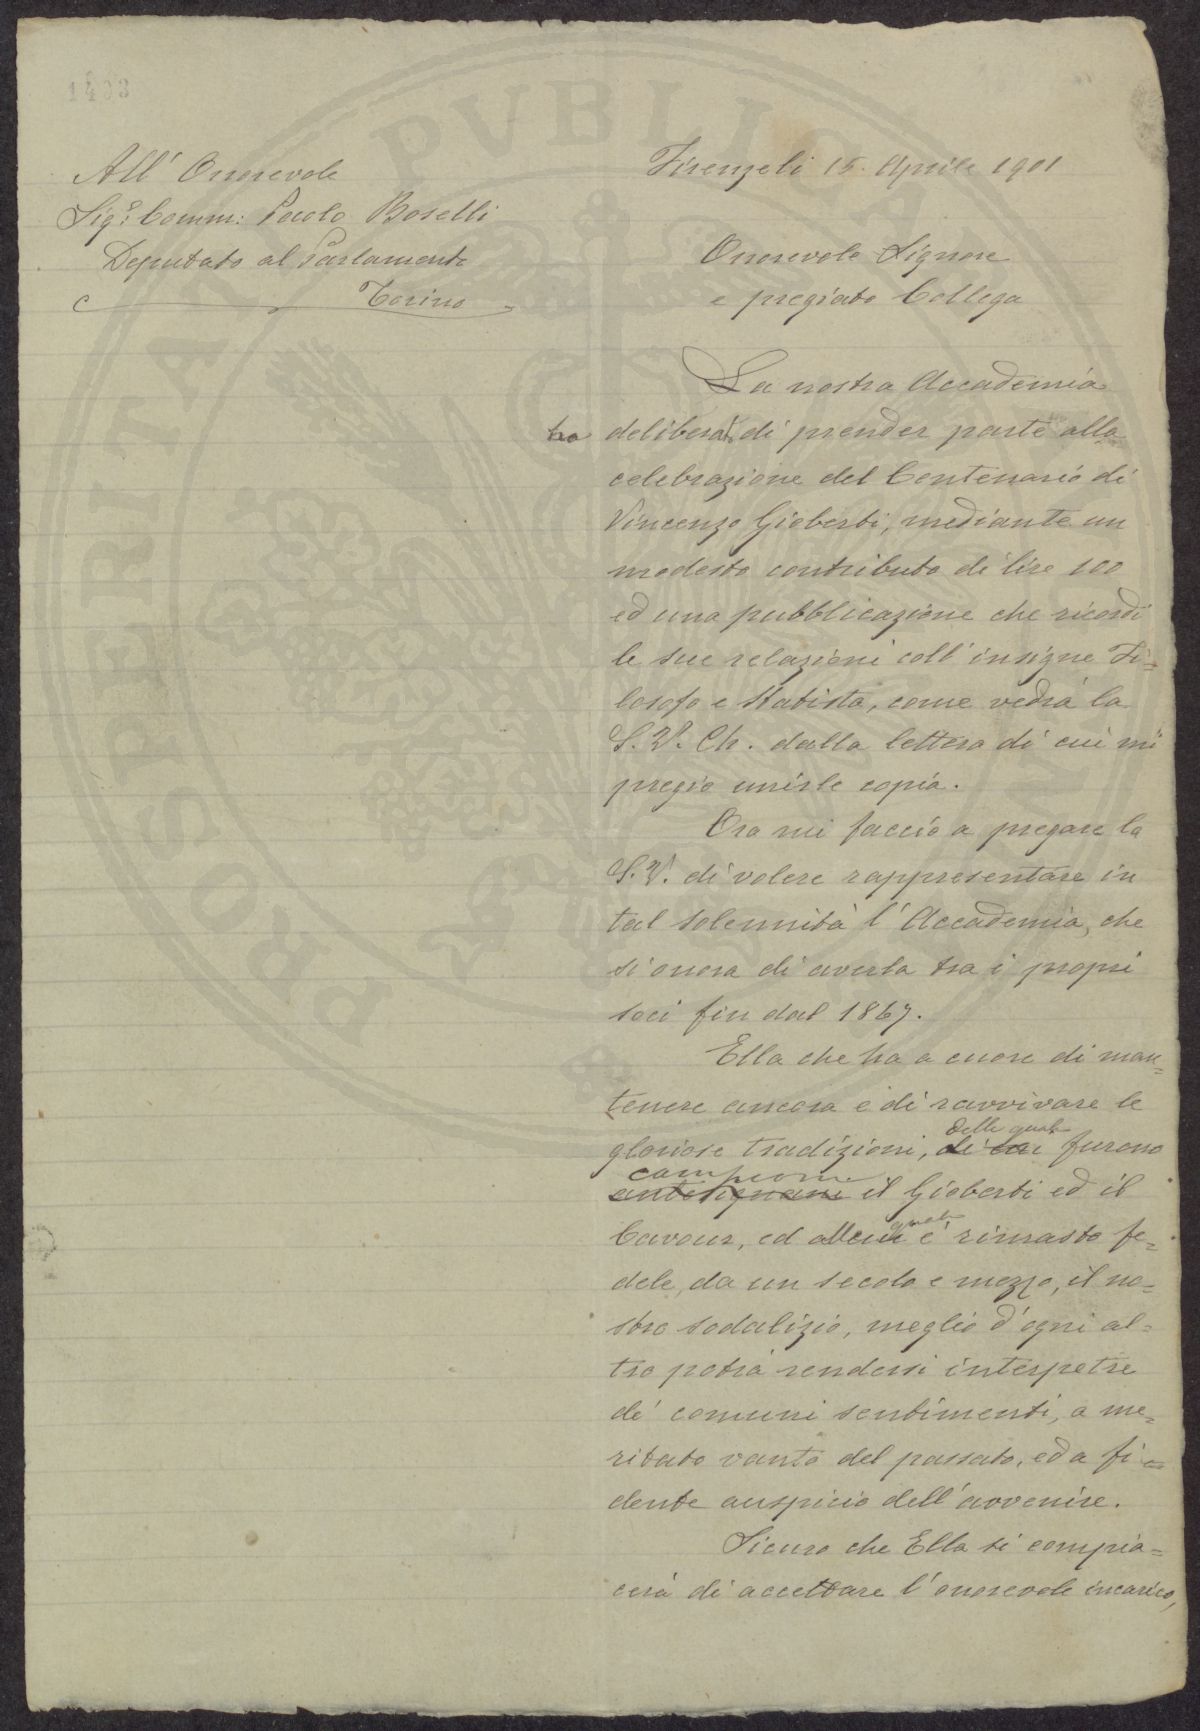 1403
All' Onorevole
Sig.r Comm: Paolo Boselli
Deputato al Parlamento
Torino
Firenze li 15. Aprile 1901
Onorevole Signore
e pregiato Collega
La nostra Accademia
ha deliberat di prender parte alla
celebrazione del Centenario di
Vincenzo Gioberti, mediante un
modesto contributo di lire 100
ed una pubblicazione che ricordi
le sue relazioni coll' insigne Fi=
losofo e Statista, come vedrà la
S. V. Ch. dalla lettera di cui mi
pregio unirle copia.
Ora mi faccio a pregare la
S. V. di volere rappresentare in
tal solennità l' Accademia, che
si onora di averla tra i propri
soci fin dal 1867.
Ella che ha a cuore di man=
tenere ancora e di ravvivare le
delle quali
gloriose tradizioni, di cui furono
campioni
antesignani il Gioberti ed il
quali
Cavour, ed alle cui è rimasto fe=
dele, da un secolo e mezzo, il no=
stro sodalizio, meglio d' ogni al=
tro potrà rendersi interpetre
de' comuni sentimenti, a me=
ritato vanto del passato, ed a fi=
dente auspicio dell' avvenire.
Sicuro che Ella si compia=
cerà di accettare l' onorevole incarico,
PROSPERITA PVBLICA